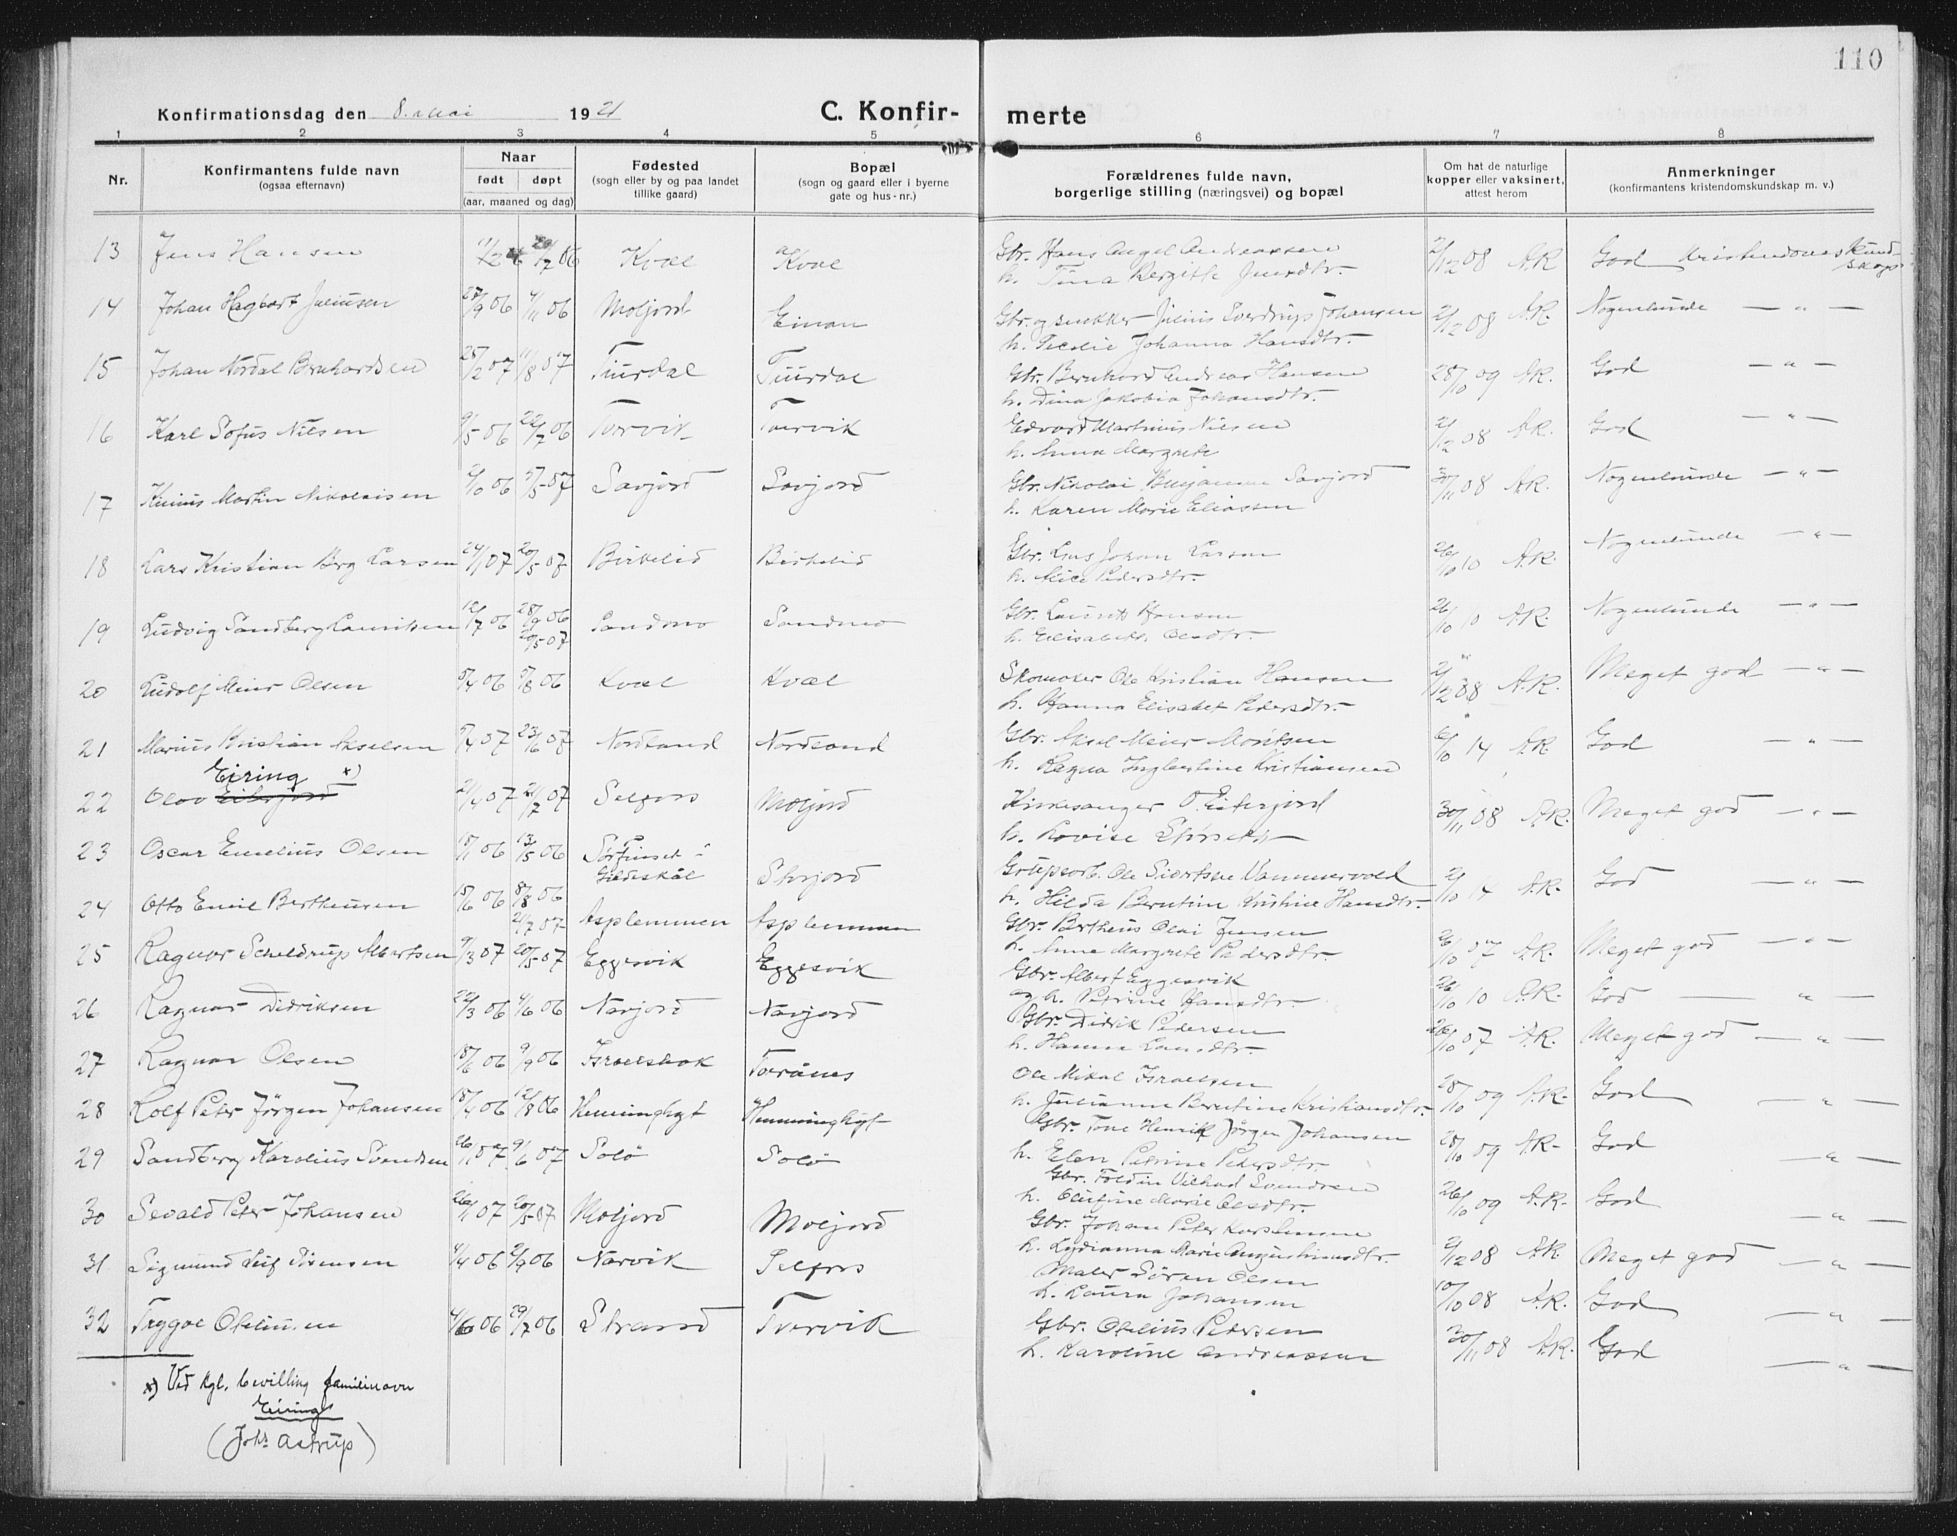 110
Konfirmationsdag den 8. mai 1921
C. Konfir-
merte
1 2 3 4 5 6 7 8
Nr.
Konfirmantens fulde navn
(ogsaa efternavn)
Naar
født døpt
(aar, maaned og dag)
Fødested
(sogn eller by og paa landet
tillike gaard)
Bopæl
(sogn og gaard eller i byerne
gate og hus-nr.)
Forældrenes fulde navn,
borgerlige stilling (næringsvei) og bopæl
Om hat de naturlige
kopper eller vaksinert,
attest herom
Anmerkninger
(konfirmantens kristendomskundskap m. v.)
13 Jens Hansen 20/7 06 Kvæl Kvæl
Gbr. Hans Angel Andreassen 2/12 08 A.R. God Kristendomskund-
skap
h. Tina Bergette Jensdtr.
14 Johan Hagbart Juliussen 27/9 06 4/11 06 Moljord Einan
Gbr. og snekker Julius Sverdrup Johansen 2/12 08 A.R. Nogenlunde — " —
h. Cecelie Johanna Hansdtr.
15 Johan Nordal Bernhardsen 25/2 07 11/8 07 Tuurdal Tuurdal
Gbr. Bernhard Andreas Hansen 28/10 09 A.R. God — " —
h. Dina Jakobia Johansdtr.
16 Karl Sofus Nilsen 9/5 06 22/7 06 Tvervik Tvervik
Edvard Martinus Nilsen 2/12 08 A.R. God — " —
h. Anna Margrete
17 Martin Nikolaisen 2/10 06 Savjord Savjord
Gbr. Nikolai Benjamin Savjord 30/11 08 A.R. Nogenlunde — " —
h. Karen Marie Eliassen
18 Lars Kristian Brg Larsen 24/1 07 20/5 07 Birkelid Birkelid
Gbr. Lars Johan Larsen 26/10 10 A.R. Nogenlunde — " —
h. Alice Pedersdtr.
19 Ludvig Sandberg Lauritsen 12/7 06 28/9 06 Sandmo Sandmo
20/5 07
Gbr. Laurits Hansen 26/10 10 A.R. Nogenlunde — " —
h. Elisabeth Olsdtr.
20 Ludolf Meier Olsen 5/4 06 5/8 06 Kvæl Kvæl
Skomaker Ole Kristian Hansen 2/12 08 A.R. Meget god — " —
h. Hanna Elisabet Pedersdtr.
21 Marius Kristian Akselsen 5/4 07 23/6 07 Nordsand Nordsand
Gbr. Aksel Meier Moritsen 6/10 14 A.R. God — " —
h. Ragna Ingbertine Kristiansen
Eiring x)
22 Olav Eiterjord 21/4 07 21/7 07 Selfors Moljord
Kirkesanger O. Eiterjord 30/11 08 A.R. Meget god — " —
h. Lovise
23 Oscar Emelius Olsen 18/1 06 13/5 06 Sørfinset i Storjord
Gildeskål
Ole Siværtsen Vammervold 2/10 14 A.R. God — " —
h. Hilda Berntine Kristine Hansdtr.
24 Otto Emil Bertheusen 15/6 06 8/8 06 Asplemmen Asplemmen
21/7 07
Gbr. Bertheus Olai Jensen 26/10 07 A.R. Meget god — " —
h. Anne Margrete Pedersdtr.
25 Ragnar Scheldrup Albertsen 9/3 07 20/5 07 Eggesvik Eggesvik
Gbr. Albert Eggesvik 26/10 10 A.R. God — " —
og h. Petrine Hansdtr.
26 Ragnar Didriksen 22/3 06 4/6 06 Navjord Navjord
Gbr. Didrik Pedersen 26/10 07 A.R. Meget god — " —
h. Hanna Larsdtr.
27 Ragnar Olsen 18/6 06 9/9 06 Israelsbak Tverånes
Ole Mikal Israelsen 28/10 09 A.R. God — " —
h. Julianne Berntine Kristiansdtr.
28 Rolf Peter Jørgen Johansen 18/4 06 12/8 06 Hemminghyt Hemminghyt
Gbr. Tone Henrik Jørgen Johansen 28/10 09 A.R. God — " —
h. Elen Petrine Pedersdtr.
29 Sandberg Karolius Svendsen 26/1 07 9/6 07 Solø Solø
Gbr. Foldin Vilhad Svendsen 26/10 09 A.R. God — " —
h. Olufine Marie Olsdtr.
30 Sevald Peter Johansen 26/1 07 20/5 07 Moljord Moljord
Gbr. Johan Peter Karstensen 2/12 08 A.R. Meget god — " —
h. Lydianna Marie Augustinusdtr.
31 Sigmund Leif Sørensen 4/4 06 2/9 06 Narvik Selfors
Maler Søren Olsen 10/10 08 A.R. God — " —
h. Laura Johansen
32 Trygve Otelius​en 4/6 06 29/7 06 Strand Tvervik
Gbr. Otelius Petersen 30/11 08 A.R. God — " —
h. Karoline Andreassen
x) Ved kgl. bevilling familienavn
Eiring
(Johs Astrup)